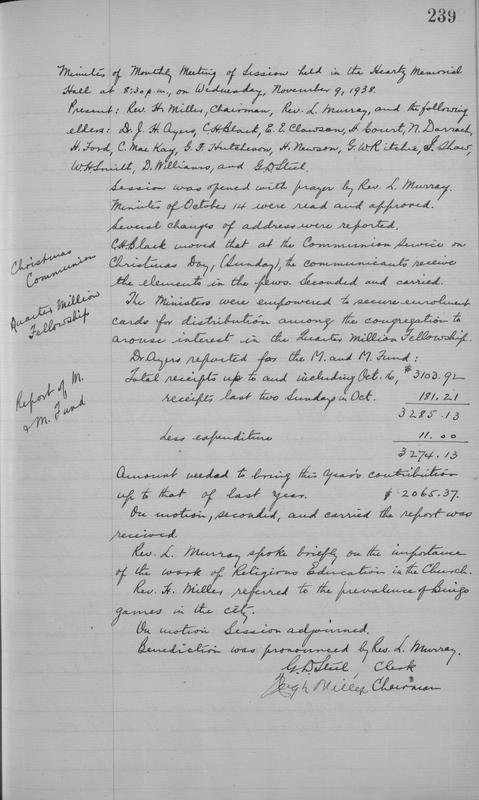 239
Minutes of Monthly Meeting of Session held in the Heartz Memorial
Hall at 8:30 p.m., on Wednesday, November 9, 1938.
Present: Rev. H. Miller, Chairman, Rev. L. Murray, and the following
elders: Dr. J. H. Ayers, C. H. Black, E. E. Clawson, Court, N. Darrach,
H. Ford, C. MacKay, G. F. Hutcheson, H. Newson, G. W. Ritchie, Shaw,
W. H. Smith, D. Williams, and G. D. Steel.
Session was opened with prayer by Rev. L. Murray.
Minutes of October 14 were read and approved.
Several changes of address were reported.
Christmas
Communion
C. H. Black moved that at the Communion Service on
Christmas Day, (Sunday), the communicants receive
the elements in the pews. Seconded and carried.
Quarter Million
Fellowship
The Ministers were empowered to secure enrolment
cards for distribution among the congregation to
arouse interest in the Quarter Million Fellowship.
Report of M.
& M. Fund
Dr. Ayers reported for the M. and M. Fund:
Total receipts up to and including Oct. 16, $3103.92
receipts last two Sundays in Oct. 181.21
3285.13
Less expenditure 11.00
3274.13
Amount needed to bring this Year's contribution
up to that of last Year. $2065.37.
On motion, seconded, and carried the report was
received.
Rev. L. Murray spoke briefly on the importance
of the work of Religious Education in the Church.
Rev. H. Miller referred to the prevalence of Bingo
games in the city.
On motion Session adjourned.
Benediction was pronounced by Rev. L. Murray.
G. D. Steel Clerk
Hugh Miller Chairman